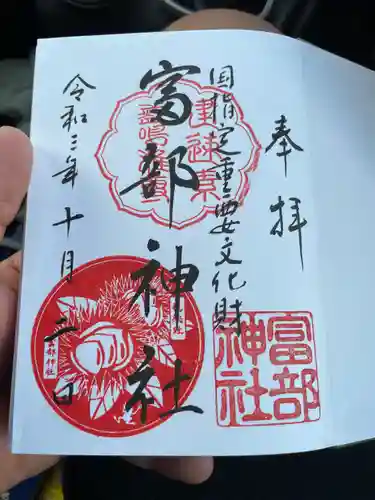 奉拝
国指定重要文化財
富部神社
令和三年十月三日
富部
神社